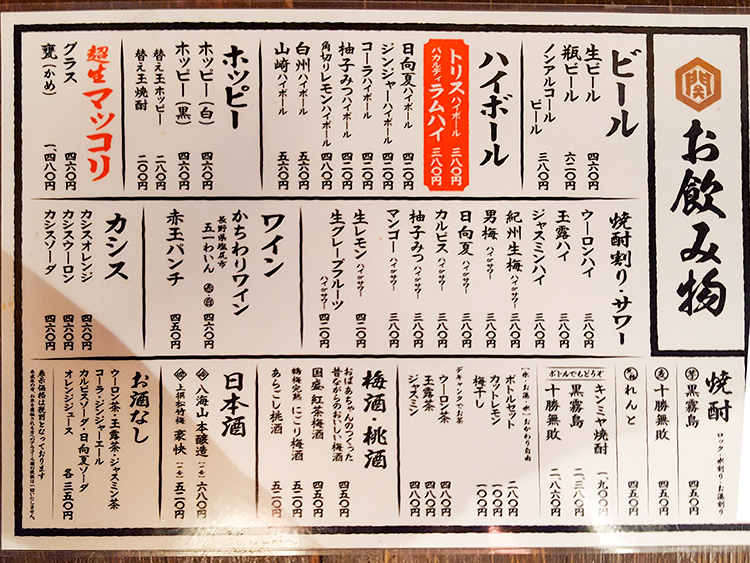 お飲み物
ビール
生ビール 四六〇円
瓶ビール 六二〇円
ノンアルコールビール 三八〇円
ハイボール
トリスハイボール 三八〇円
バカルディラムハイ 三八〇円
日向夏ハイボール 四二〇円
ジンジャーハイボール 四二〇円
コーラハイボール 四二〇円
柚子みつハイボール 四二〇円
角切りレモンハイボール 四六〇円
白州ハイボール 五六〇円
山崎ハイボール 五六〇円
ホッピー
ホッピー(白) 四六〇円
ホッピー(黒) 四六〇円
替え玉ホッピー 二八〇円
替え玉焼酎 二〇〇円
超生マッコリ
グラス 四六〇円
甕(かめ) 一、四八〇円
焼酎割り・サワー
ウーロンハイ 三八〇円
玉露ハイ 三八〇円
ジャスミンハイ 三八〇円
紀州生梅ハイorサワー 三八〇円
男梅ハイorサワー 三八〇円
日向夏ハイorサワー 三八〇円
カルピスハイorサワー 三八〇円
柚子みつハイorサワー 三八〇円
マンゴーハイorサワー 三八〇円
生レモンハイorサワー 四二〇円
生グレープフルーツハイorサワー 四二〇円
ワイン
かちわりワイン 四六〇円
長野県塩尻市
五一わいん 赤・白
赤玉パンチ 四五〇円
カシス
カシスオレンジ 四六〇円
カシスウーロン 四六〇円
カシスソーダ 四六〇円
焼酎 ロック・水割り・お湯割り
芋 黒霧島 四五〇円
麦 十勝無敗 四五〇円
れんと 四五〇円
ボトルでもどうぞ
キンミヤ焼酎 一、九〇〇円
黒霧島 二、三八〇円
十勝無敗 二、八六〇円
(氷)(お湯)(水)おかわり自由
ボトルセット 二八〇円
カットレモン 一〇〇円
梅干し 一〇〇円
デキャンタでお茶
ウーロン茶 四八〇円
玉露茶 四八〇円
ジャスミン 四八〇円
梅酒・桃酒
おばあちゃんのつくった
昔ながらのおいしい梅酒 四五〇円
国盛 紅茶梅酒 四五〇円
鶴梅完熟 にごり梅酒 五二〇円
あらごし桃酒 五二〇円
日本酒
八海山 本醸造(一合) 六八〇円
上撰松竹梅 豪快(一合) 五二〇円
お酒なし
ウーロン茶・玉露茶・ジャスミン茶
コーラ・ジンジャーエール
カルピスソーダ・日向夏ソーダ
オレンジジュース 各 三五〇円
表示価格は税別となっております